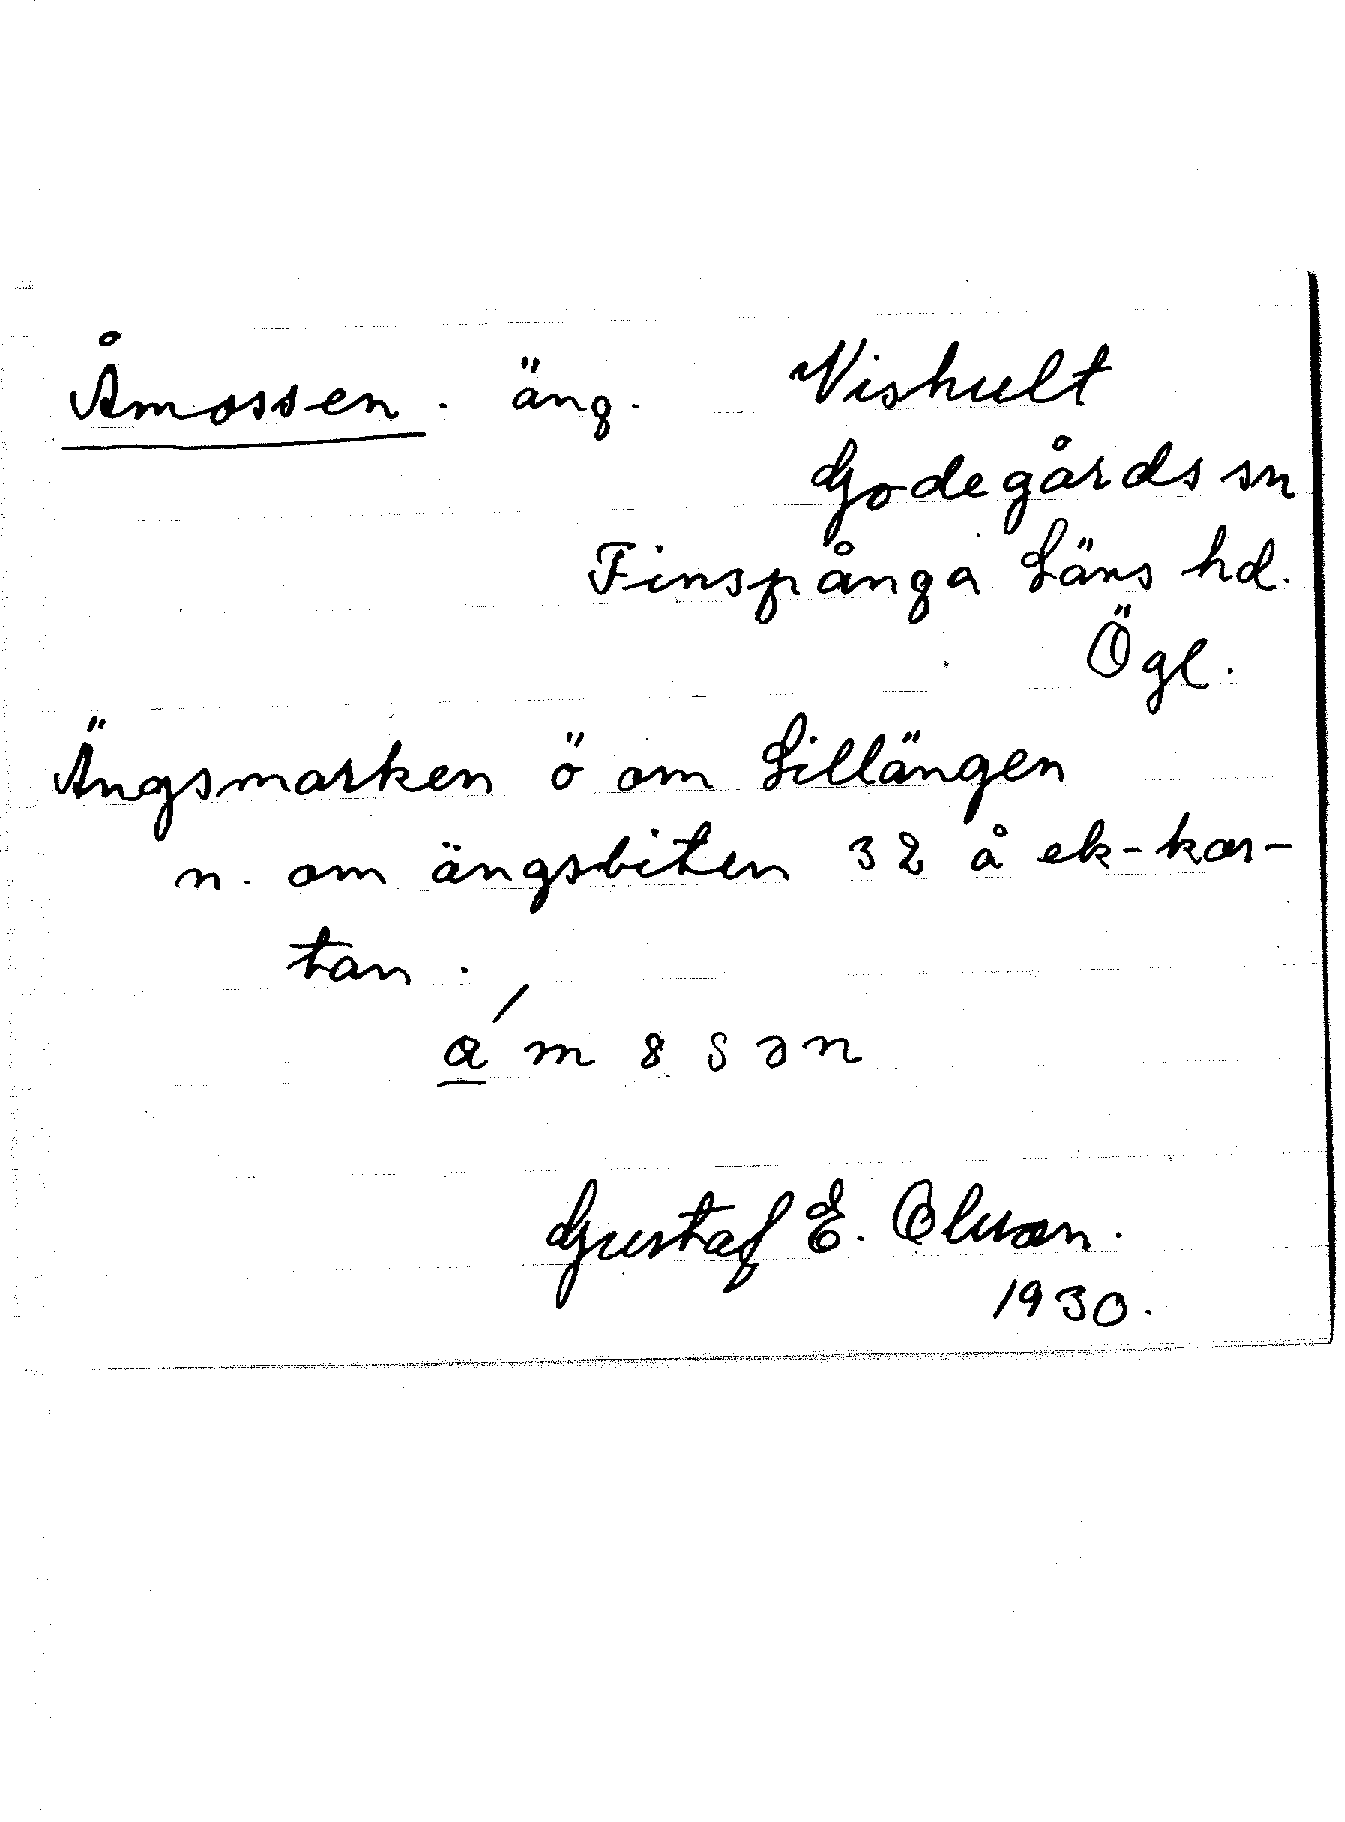 Åmossen. äng. Vishult
Godegårds sn
Finspånga Läns hd.
Ögl.
Ängsmarken ö om Lillängen
n. om ängsbiten 32 å ek-kar-
tan.
Gustaf E. Olsson.
1930.